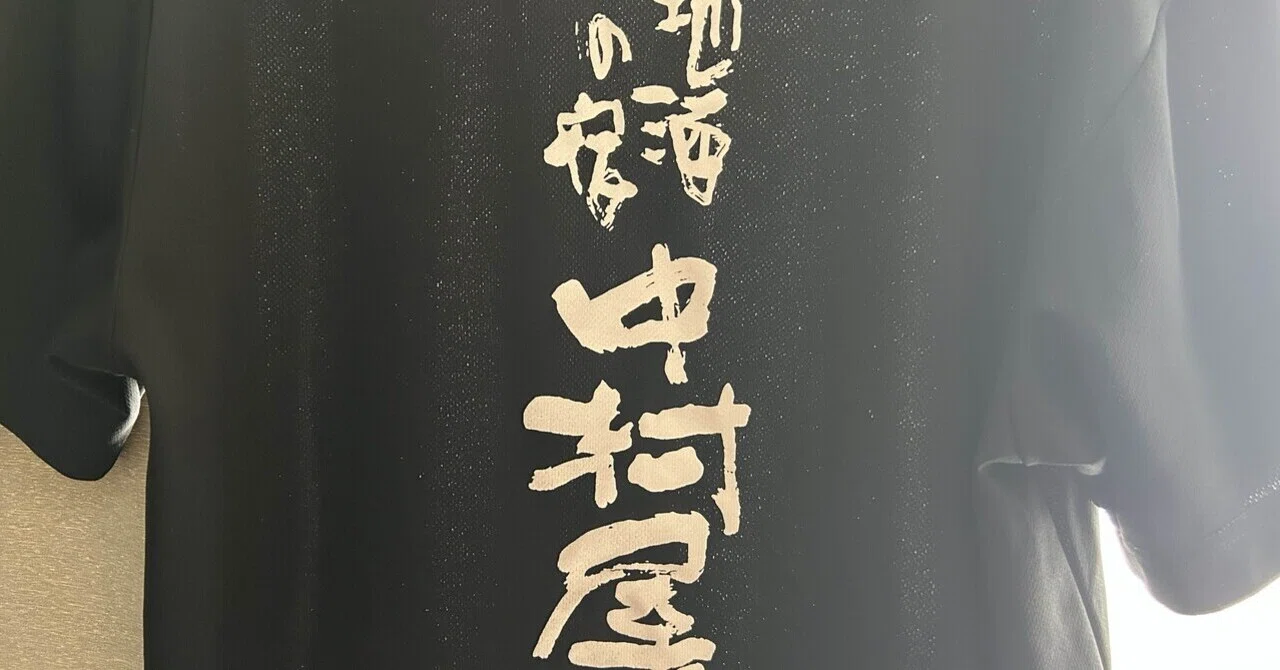 地酒
の宿
中村屋